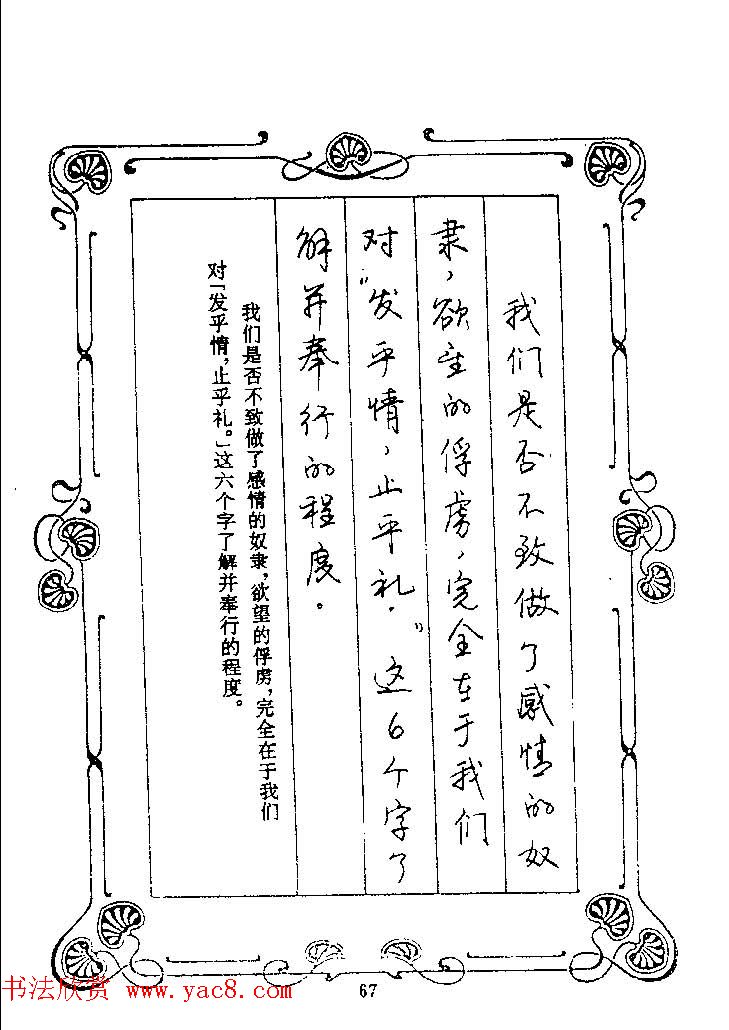 我们是否不致做了感情的奴
隶，欲望的俘虏，完全在于我们
对“发乎情，止乎礼。”这6个字了
解并奉行的程度。
我们是否不致做了感情的奴隶，欲望的俘虏，完全在于我们
对「发乎情，止乎礼。」这六个字了解并奉行的程度。
67
书法欣赏 www.yac8.com